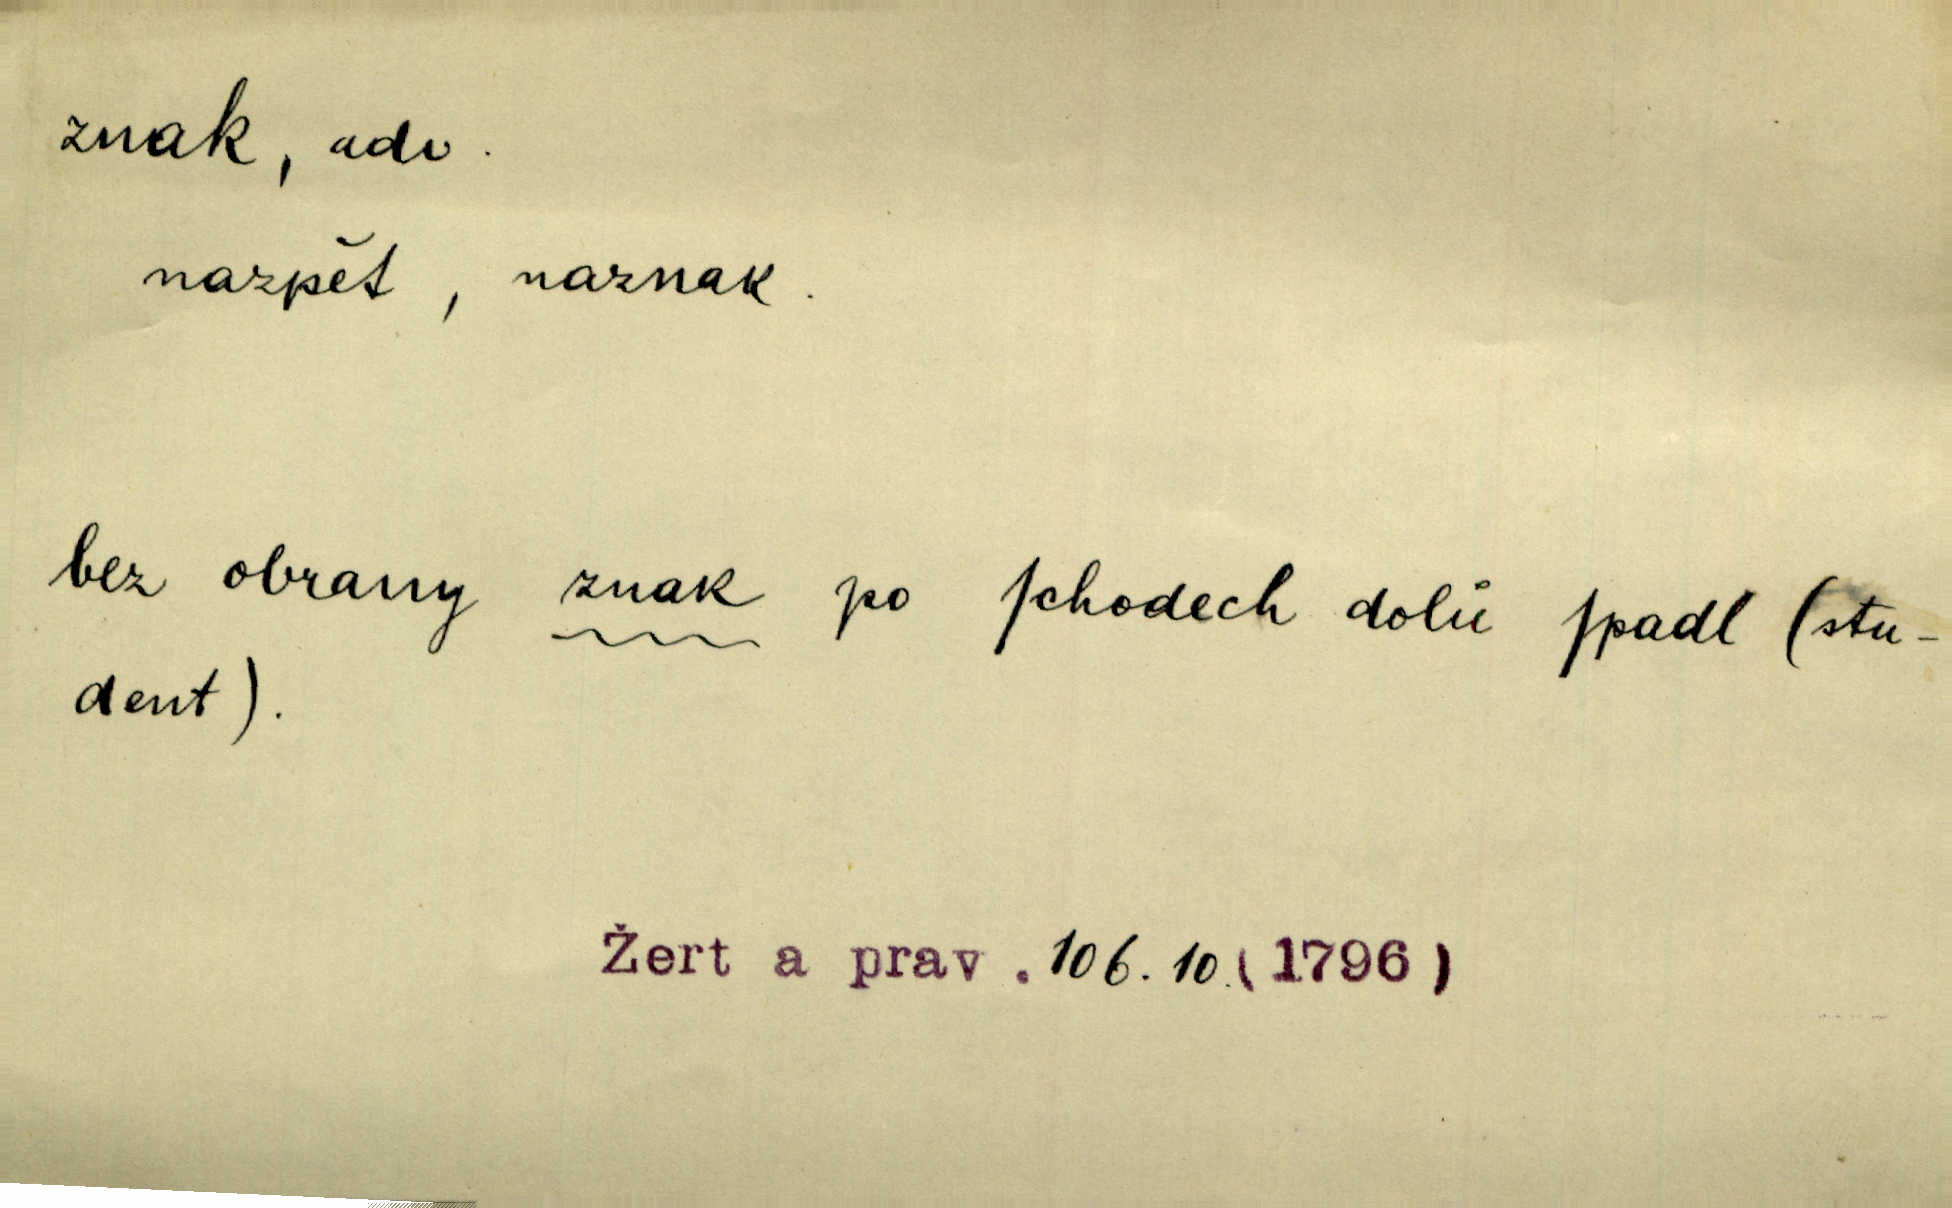 znak, adv.
nazpět, naznak.
bez obrany znak po ſchodech dolů ſpadl (stu-
dent).
Žert a prav. 106. 10. (1796)